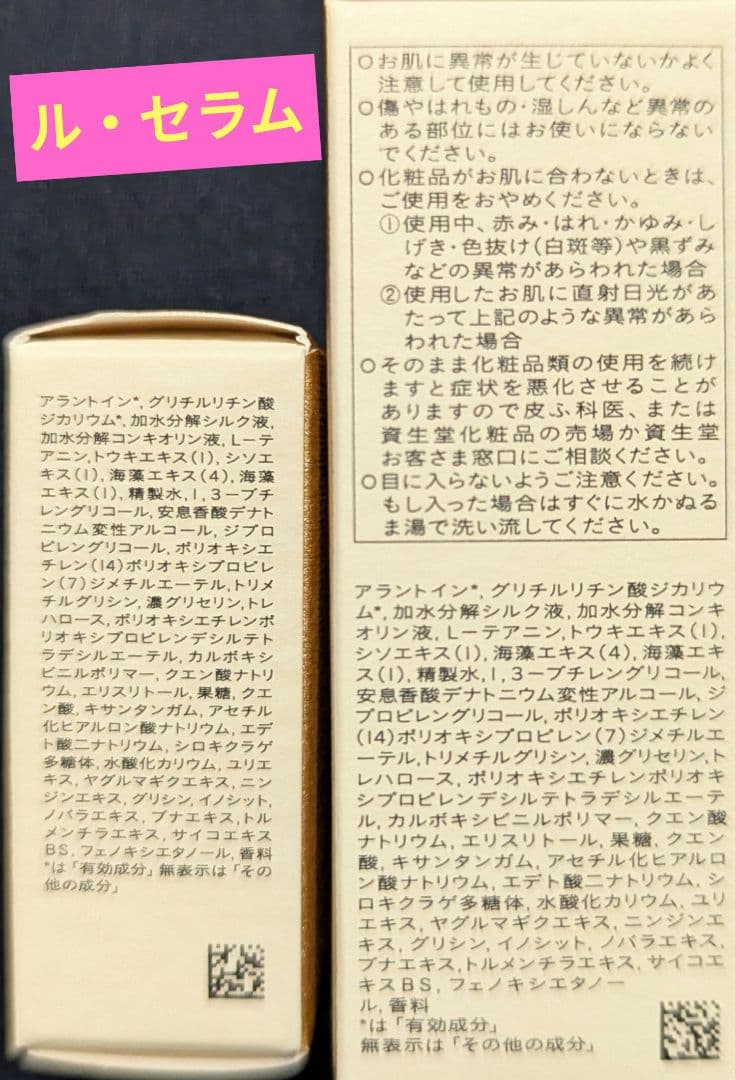 ル・セラム
アラントイン*, グリチルリチン酸
ジカリウム*, 加水分解シルク液,
加水分解コンキオリン液, L－テ
アニン,トウキエキス(1), シソエ
キス(1), 海藻エキス(4), 海藻
エキス(1), 精製水,1,3－ブチ
レングリコール, 安息香酸デナト
ニウム変性アルコール, ジプロ
ピレングリコール, ポリオキシエ
チレン(14)ポリオキシプロピレ
ン(7)ジメチルエーテル,トリメ
チルグリシン, 濃グリセリン,トレ
ハロース, ポリオキシエチレンポ
リオキシプロピレンデシルテト
ラデシルエーテル, カルボキシ
ビニルポリマー, クエン酸ナトリ
ウム, エリスリトール, 果糖, クエ
ン酸, キサンタンガム, アセチル
化ヒアルロン酸ナトリウム, エデ
ト酸二ナトリウム, シロキクラゲ
多糖体, 水酸化カリウム, ユリエ
キス, ヤグルマギクエキス, ニン
ジンエキス, グリシン, イノシット,
ノバラエキス, ブナエキス,トル
メンチラエキス, サイコエキス
BS, フェノキシエタノール, 香料
*は「有効成分」無表示は「その
他の成分」
○お肌に異常が生じていないかよく
注意して使用してください。
○傷やはれもの・湿しんなど異常の
ある部位にはお使いにならない
でください。
○化粧品がお肌に合わないときは、
ご使用をおやめください。
①使用中、赤み・はれ・かゆみ・し
げき・色抜け(白斑等)や黒ずみ
などの異常があらわれた場合
②使用したお肌に直射日光があ
たって上記のような異常があら
われた場合
○そのまま化粧品類の使用を続け
ますと症状を悪化させることが
ありますので皮ふ科医、または
資生堂化粧品の売場か資生堂
お客さま窓口にご相談ください。
○目に入らないようご注意ください。
もし入った場合はすぐに水かぬる
ま湯で洗い流してください。
アラントイン*, グリチルリチン酸ジカリウ
ム*, 加水分解シルク液, 加水分解コンキ
オリン液, L－テアニン,トウキエキス(1),
シソエキス(1), 海藻エキス(4), 海藻エキ
ス(1), 精製水,1,3－ブチレングリコール,
安息香酸デナトニウム変性アルコール, ジ
プロピレングリコール, ポリオキシエチレン
(14)ポリオキシプロピレン(7)ジメチルエ
ーテル,トリメチルグリシン, 濃グリセリン,ト
レハロース, ポリオキシエチレンポリオキ
シプロピレンデシルテトラデシルエーテ
ル, カルボキシビニルポリマー, クエン酸
ナトリウム, エリスリトール, 果糖, クエン
酸, キサンタンガム, アセチル化ヒアルロ
ン酸ナトリウム, エデト酸二ナトリウム, シ
ロキクラゲ多糖体, 水酸化カリウム, ユリ
エキス, ヤグルマギクエキス, ニンジンエ
キス, グリシン, イノシット, ノバラエキス,
ブナエキス,トルメンチラエキス, サイコエ
キスBS, フェノキシエタノー
ル, 香料
*は「有効成分」
無表示は「その他の成分」